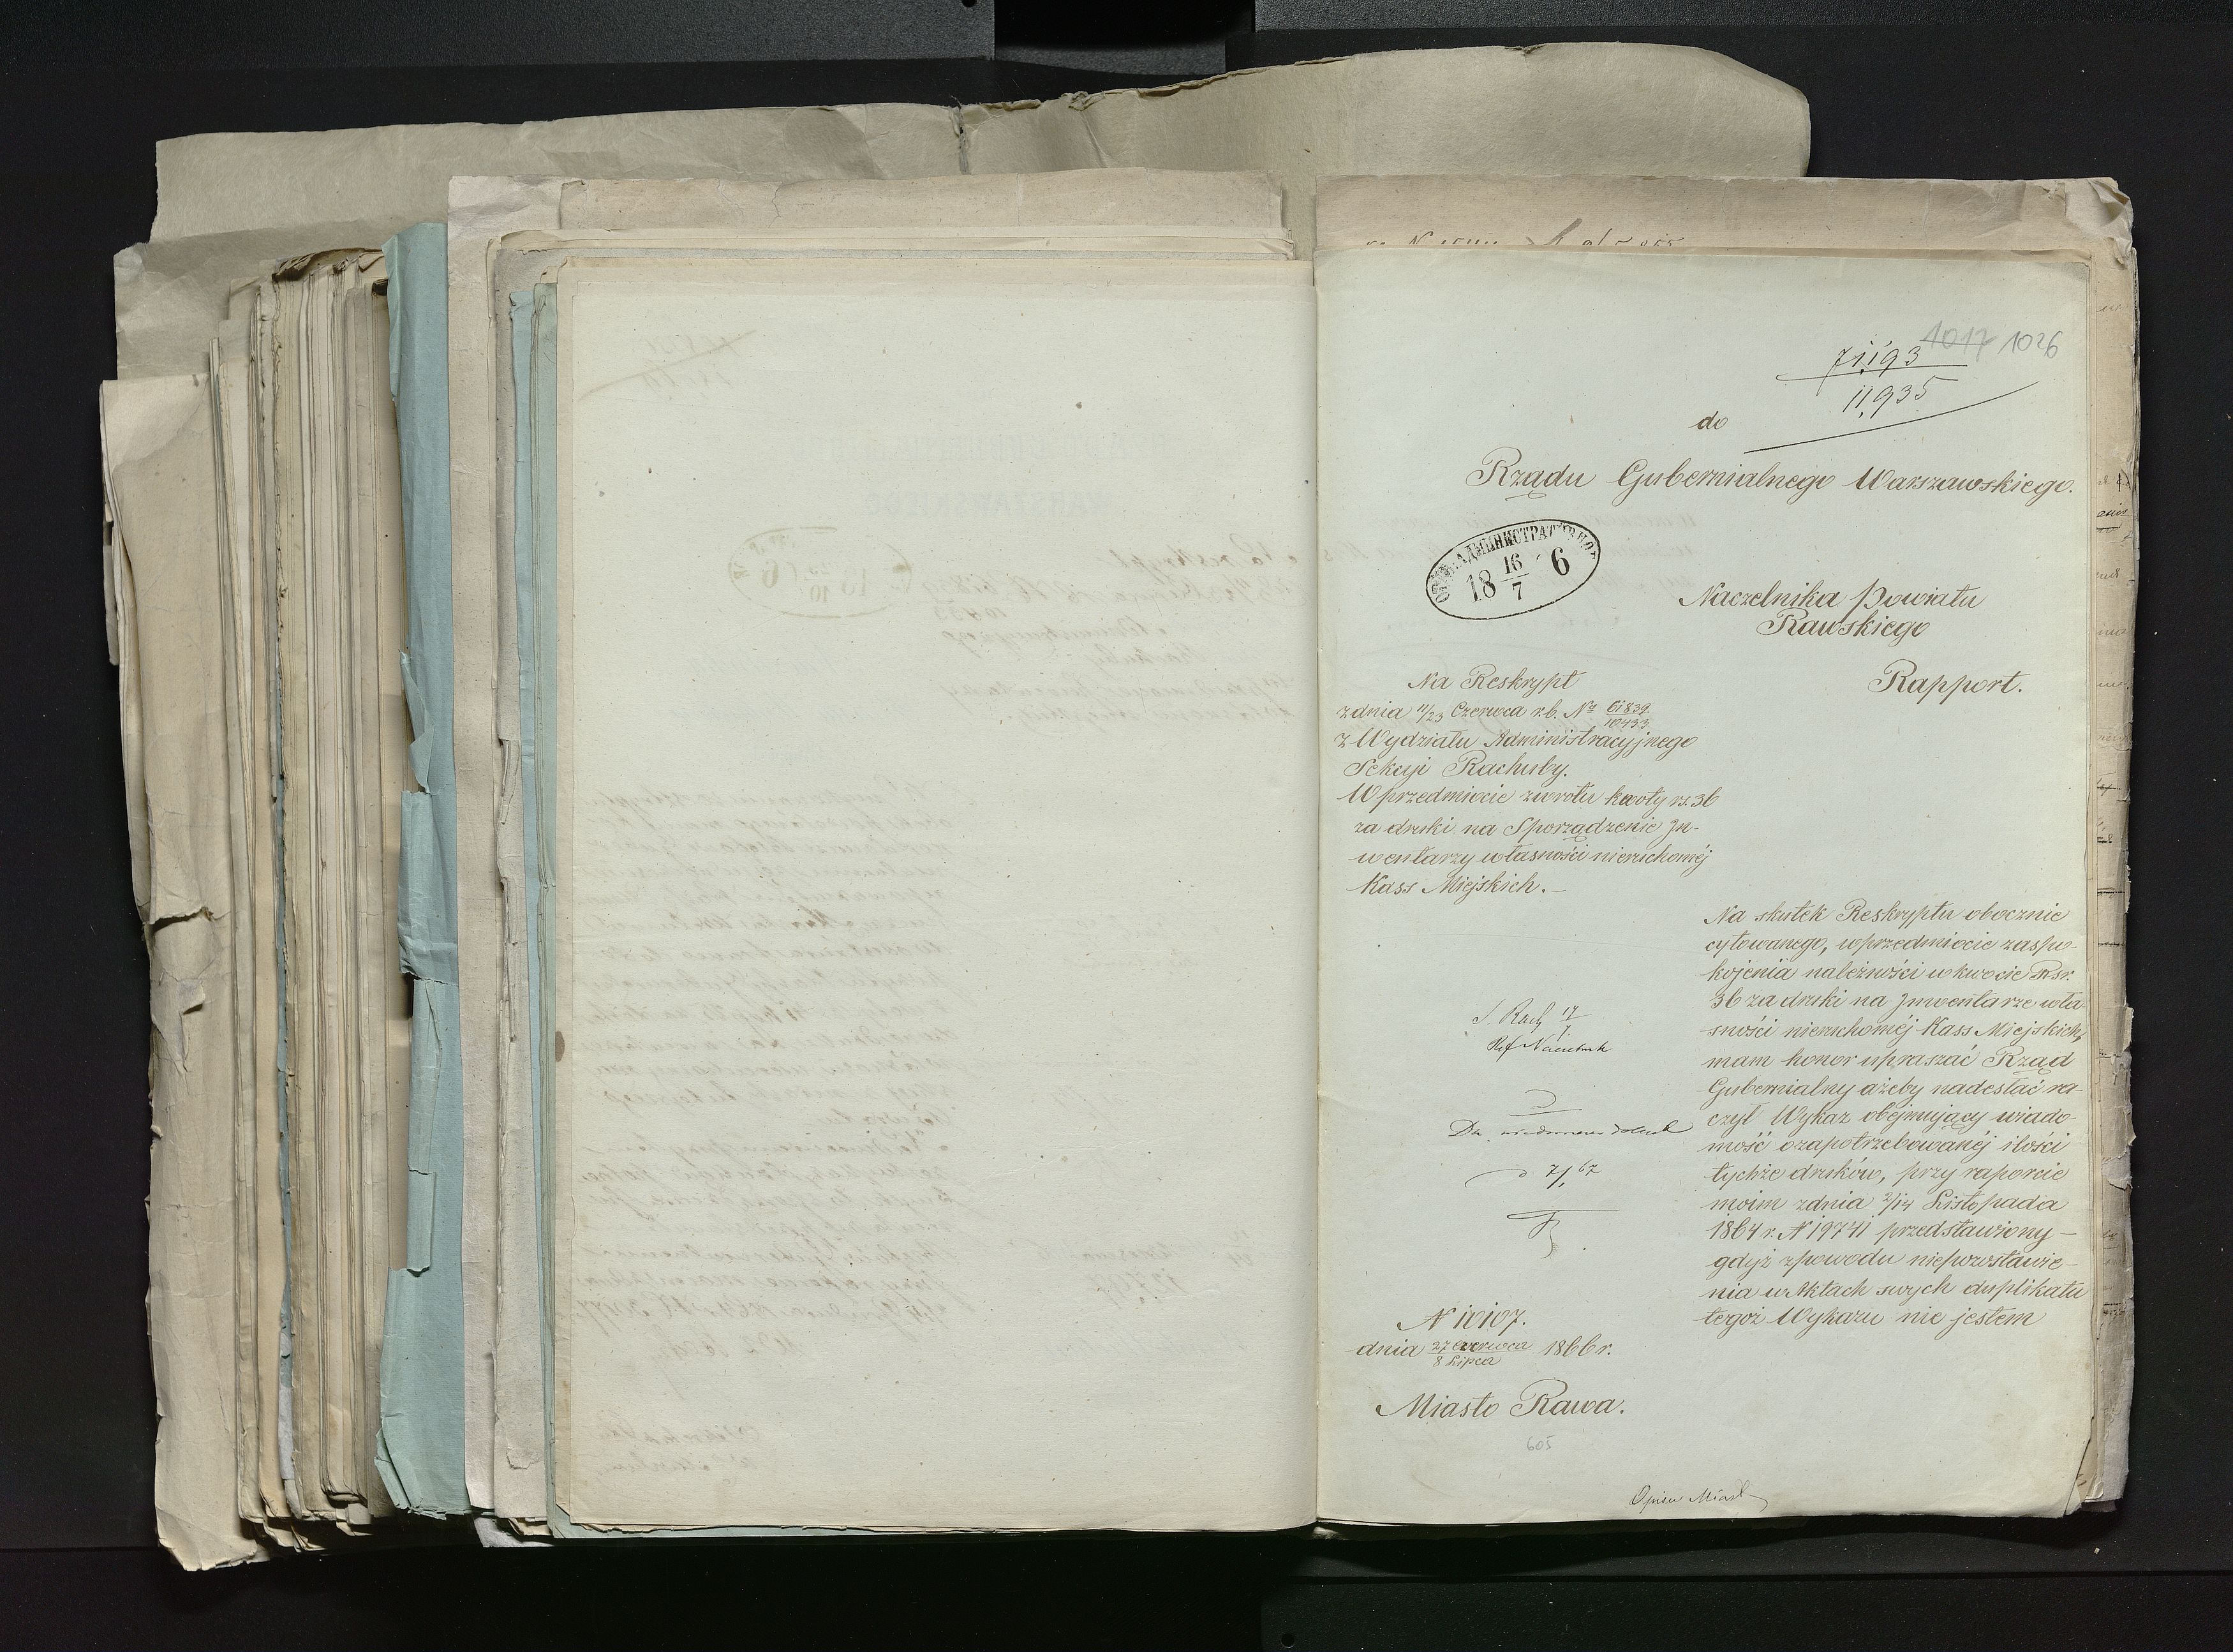 1017 1026
71,193
11,935
do
Rządu Gubernialnego Warszawskiego.
АДМИНИСТРАТИВНОЕ
18 16/7 66
Naczelnika Powiatu
Rawskiego
Rapport.
Na Reskrypt
z dnia 11/23 Czerwca r.b. No 61839/10433
z Wydziału Administracyjnego
Sekcyi Rachuby.
W przedmiocie zwrotu kwoty rs. 36
za druki na Sporządzenie In-
wentarzy własności nieruchoméj
Kass Miejskich.—
Na skutek Reskryptu obocznie
cytowanego, w przedmiocie zaspo-
kojenia należności w kwocie Rsr.
36 za druki na Inwentarze wła-
sności nieruchoméj Kass Miejskich,
mam honor upraszać Rząd
Gubernialny ażeby nadesłać ra-
czył Wykaz obejmujący wiado-
mość o zapotrzebowanéj ilości
tychże druków, przy raporcie
moim z dnia 2/14 Listopada
1864 r. N 19741 przedstawiony —
gdyż z powodu niepozostawie-
nia w Aktach swych duplikatu
tegoż Wykazu nie jestem
S. Rach 17/7
Ref Naczelnik
d 7/1 67
N 10107.
dnia 27 Czerwca/8 Lipca 1866 r.
Miasto Rawa.
605
Opisu Miast